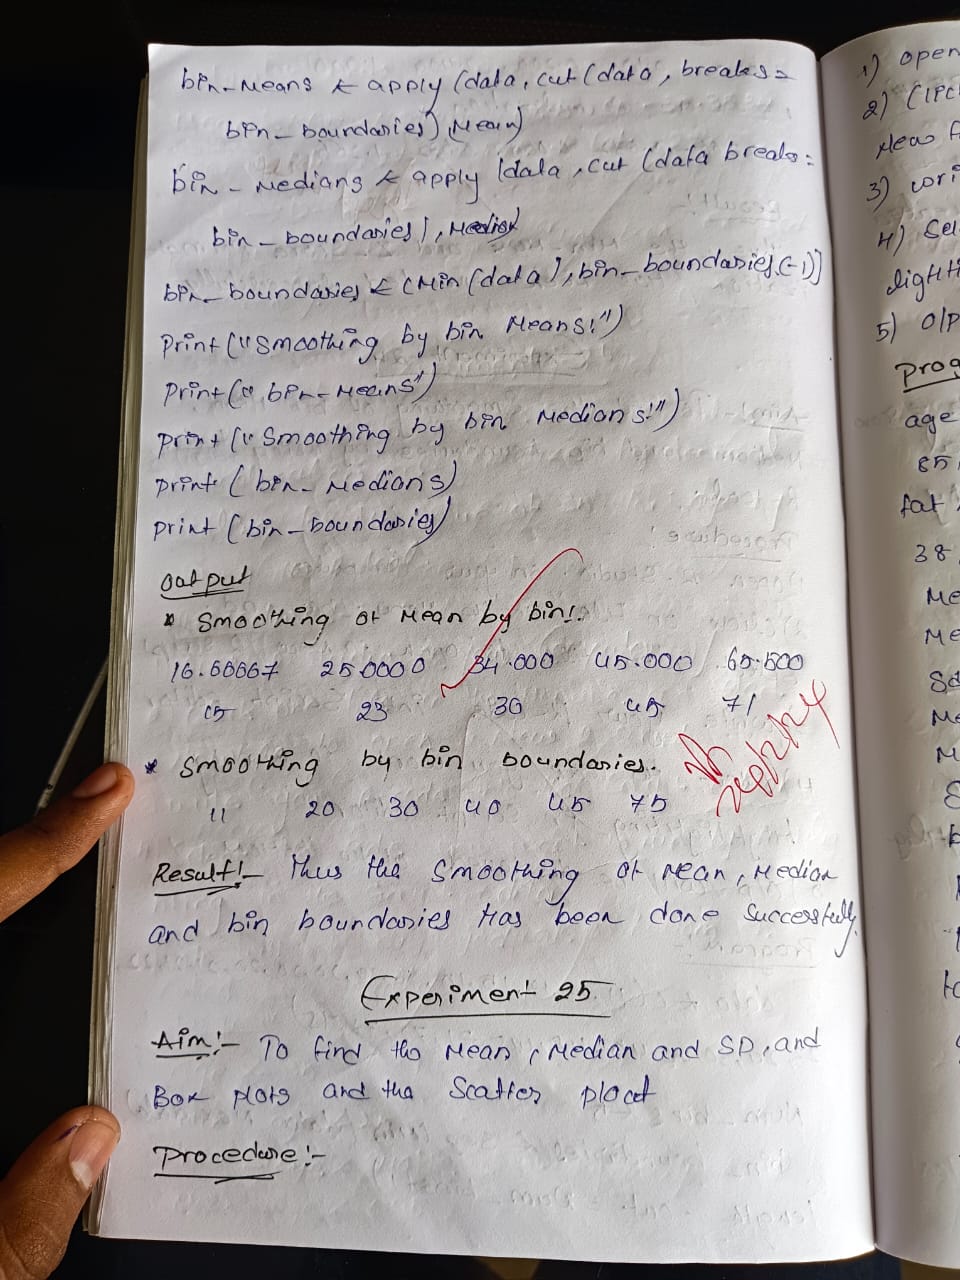 bin-Means ← apply (data, cut (data, breaks =
bin_boundaries), Mean)
bin - Medians ← apply (data, cut (data breaks =
bin_boundaries), Median
bin_boundaries ← (Min (data), bin_boundaries (-1)]
Print ("Smoothing by bin Means!")
Print (" bin-Means")
Print (" Smoothing by bin Medians!")
Print ( bin_Medians)
print (bin_boundaries)
output
* Smoothing of Mean by bin!.
16.66667 25.0000 34.000 45.000 65.500
15 23 30 45 71
* Smoothing by bin boundaries.
11 20 30 40 45 75
Result!- Thus the Smoothing of Mean, Median
and bin boundaries Has been done Successfully.
Experiment 25
Aim:- To find the Mean, Median and SD, and
Box plots and the Scatter plot
Procedure:-
1) open
2)
New
3)
4) Sel
5) O/P
Prog
age
85,
fat
38
Me
Me
Sd
Me
M